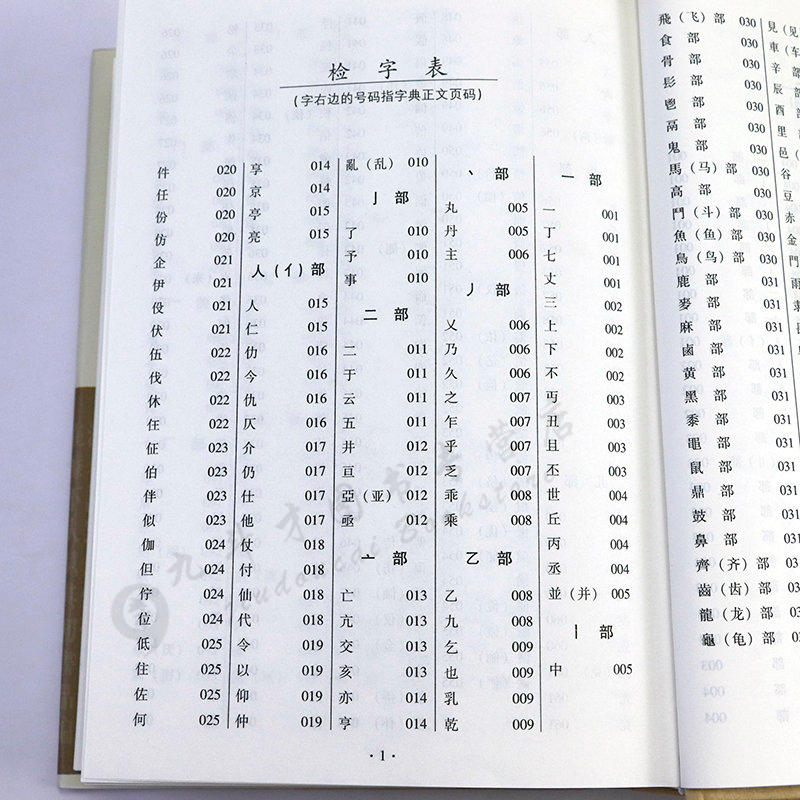 检 字 表
(字右边的号码指字典正文页码)
一 部
一 001
丁 001
七 001
丈 001
三 002
上 002
下 002
不 002
丏 003
丑 003
且 003
丕 003
世 004
丘 004
丙 004
丞 004
並（并） 005
丨 部
中 005
丶 部
丸 005
丹 005
主 006
丿 部
乂 006
乃 006
久 006
之 007
乍 007
乎 007
乏 007
乖 008
乘 008
乙 部
乙 008
九 008
乞 009
也 009
乳 009
乾 009
亂（乱） 010
亅 部
了 010
予 010
事 010
二 部
二 011
于 011
云 011
五 011
井 012
亘 012
亞（亚） 012
亟 012
亠 部
亡 013
亢 013
交 013
亥 013
亦 013
亨 014
享 014
京 014
亭 015
亮 015
人（亻）部
人 015
仁 015
仂 016
今 016
仇 016
仄 016
介 017
仍 017
仕 017
他 017
仗 018
付 018
仙 018
代 018
令 019
以 019
仰 019
仲 019
件 020
任 020
份 020
仿 020
企 021
伊 021
伇 021
伏 021
伍 022
伐 022
休 022
任 022
征 023
伯 023
伴 023
似 023
伽 024
但 024
佇 024
位 024
低 025
住 025
佐 025
何 025
·1·
飛（飞）部 030
食 部 030
骨 部 030
髟 部 030
鬯 部 030
鬲 部 030
鬼 部 030
馬（马）部 030
高 部 030
鬥（斗）部 030
魚（鱼）部 030
鳥（鸟）部 030
鹿 部 030
麥 部 030
麻 部 031
鹵 部 031
黄 部 031
黑 部 031
黍 部 031
黽 部 031
鼠 部 031
鼎 部 031
鼓 部 031
鼻 部 031
齊（齐）部 031
齒（齿）部 031
龍（龙）部 031
龜（龟）部 031
見（见
車（车
辛
辰
酉
里
邑
谷
豆
赤
金
門
雨